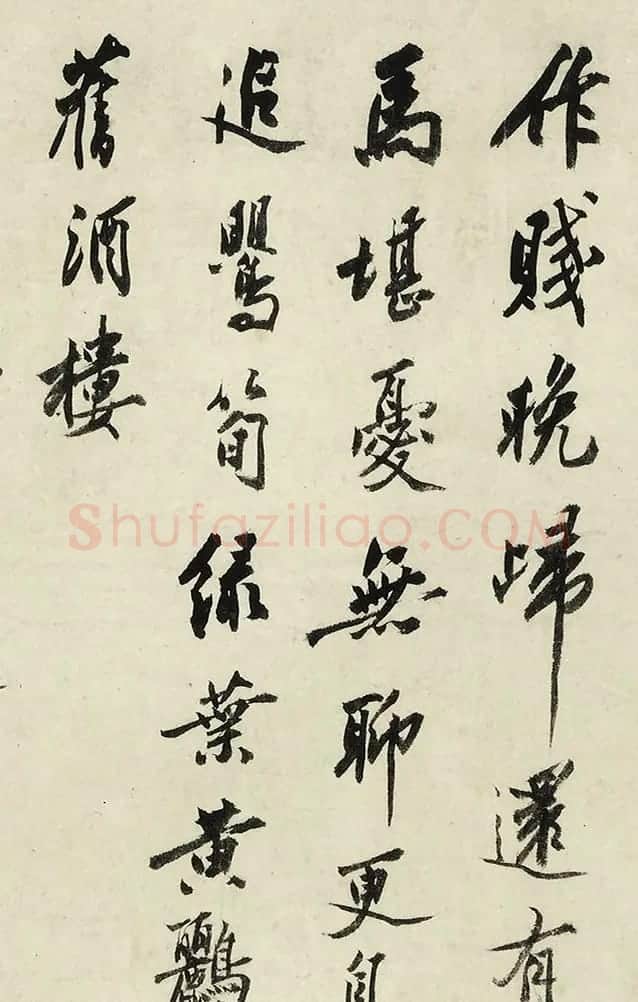 作賤晚歸還有
馬堪憂無聊更自
追鸎筍緑葉黄鸝
舊酒樓
Shufaziliao.COM